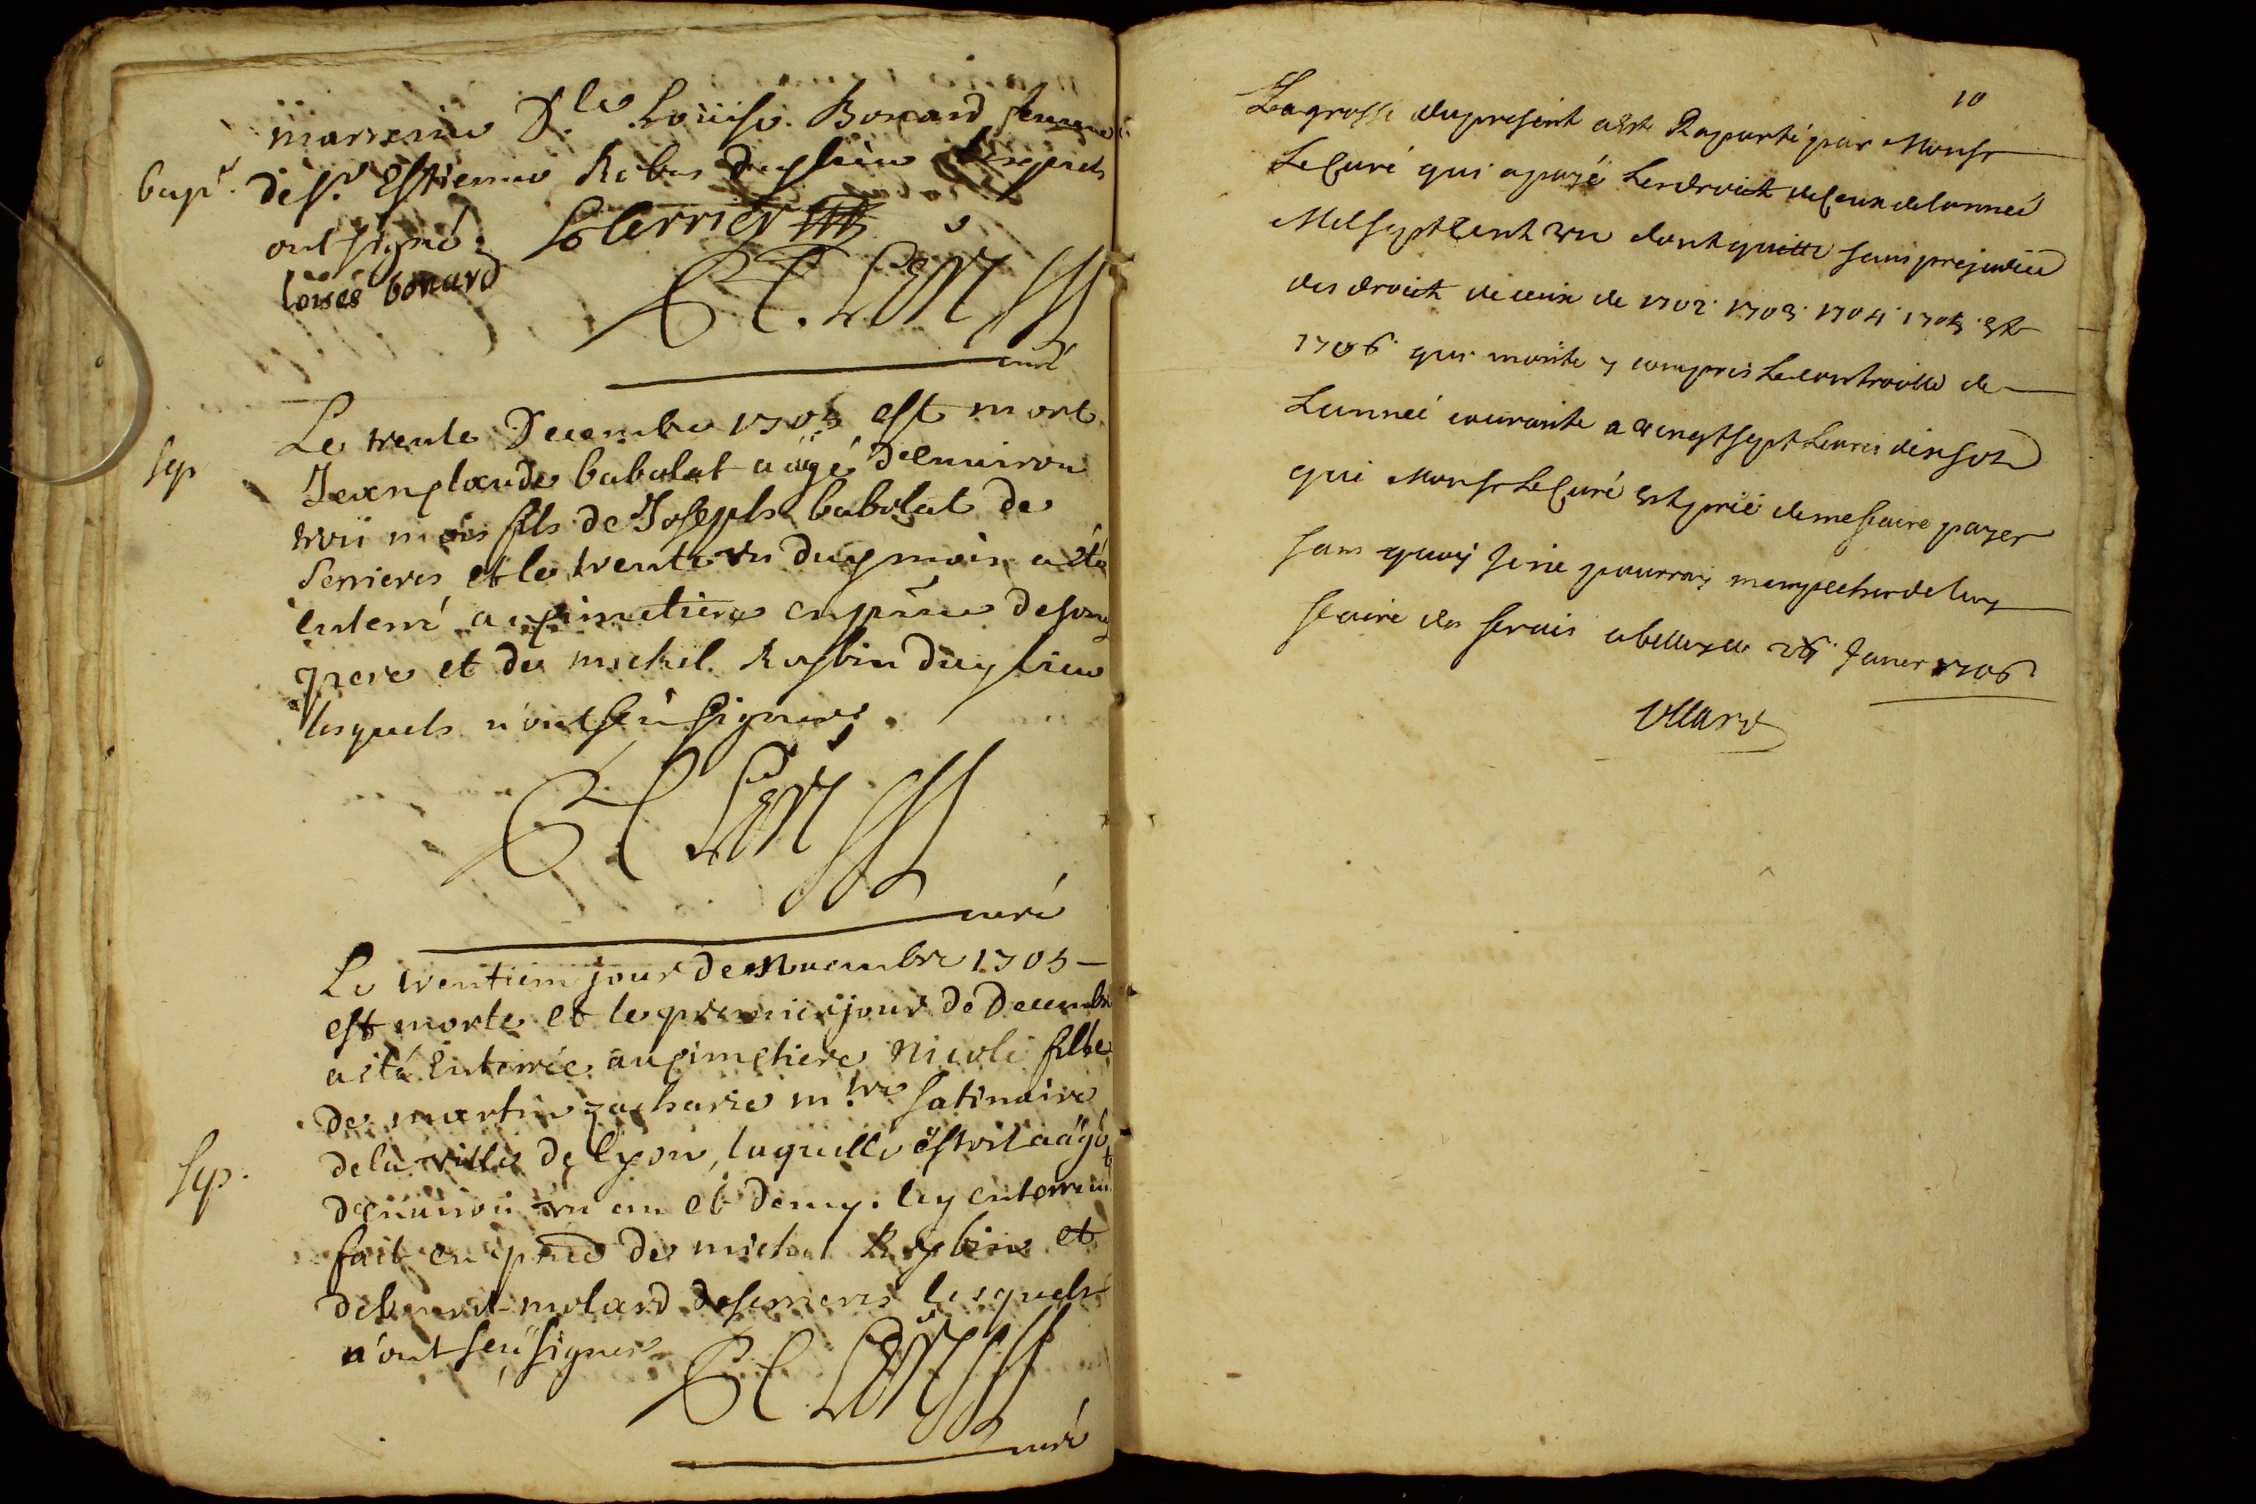 marreine D.lle Loüise Bonard femme
bapt. de sr. Estienne Ribes duy lieu lesquels
ont signé.
loises bonard
curé
sep Le trente Decembre 1705 est mort
Jean plande babolat aagé d'enuiron
troii mois fils de Joseph babolat de
Serrieres et le trente vn duy mois a été
enterré au cimetiere en pnce de son
pere et de michel Roybin duy lieu
lesquels n'ont sçeu signer.
curé
Le trentiem jour de nouembre 1705
est morte et le premier jour de Decembre
a été enterrée au cimetiere Nicole fille
de martin zacharie m.tre satinaire
sep. de la ville de lyon, laquelle estoit aagée
d'enuiron vn an et demy. ley enterrem.t
fait en pnce de michel Roybin et
de molard de serrieres lesquels
n'ont seu signer
curé
10
La grosse du present a esté Raporté par Monsr
Le Curé qui a payé Les droict de Ceux de lanneé
Mil sept Cent vn dont quitte sans prejudice
des droict de ceux de 1702. 1703. 1704. 1705. Et
1706. qui monte y compris Le controlle de
Lanneé courante a vingt sept Liures dix solz
que Monsr Le Curé est prié de me faire payer
sans quoy Je ne pourray mempecher de luy
faire des frais a belley le 26. Janer 1706